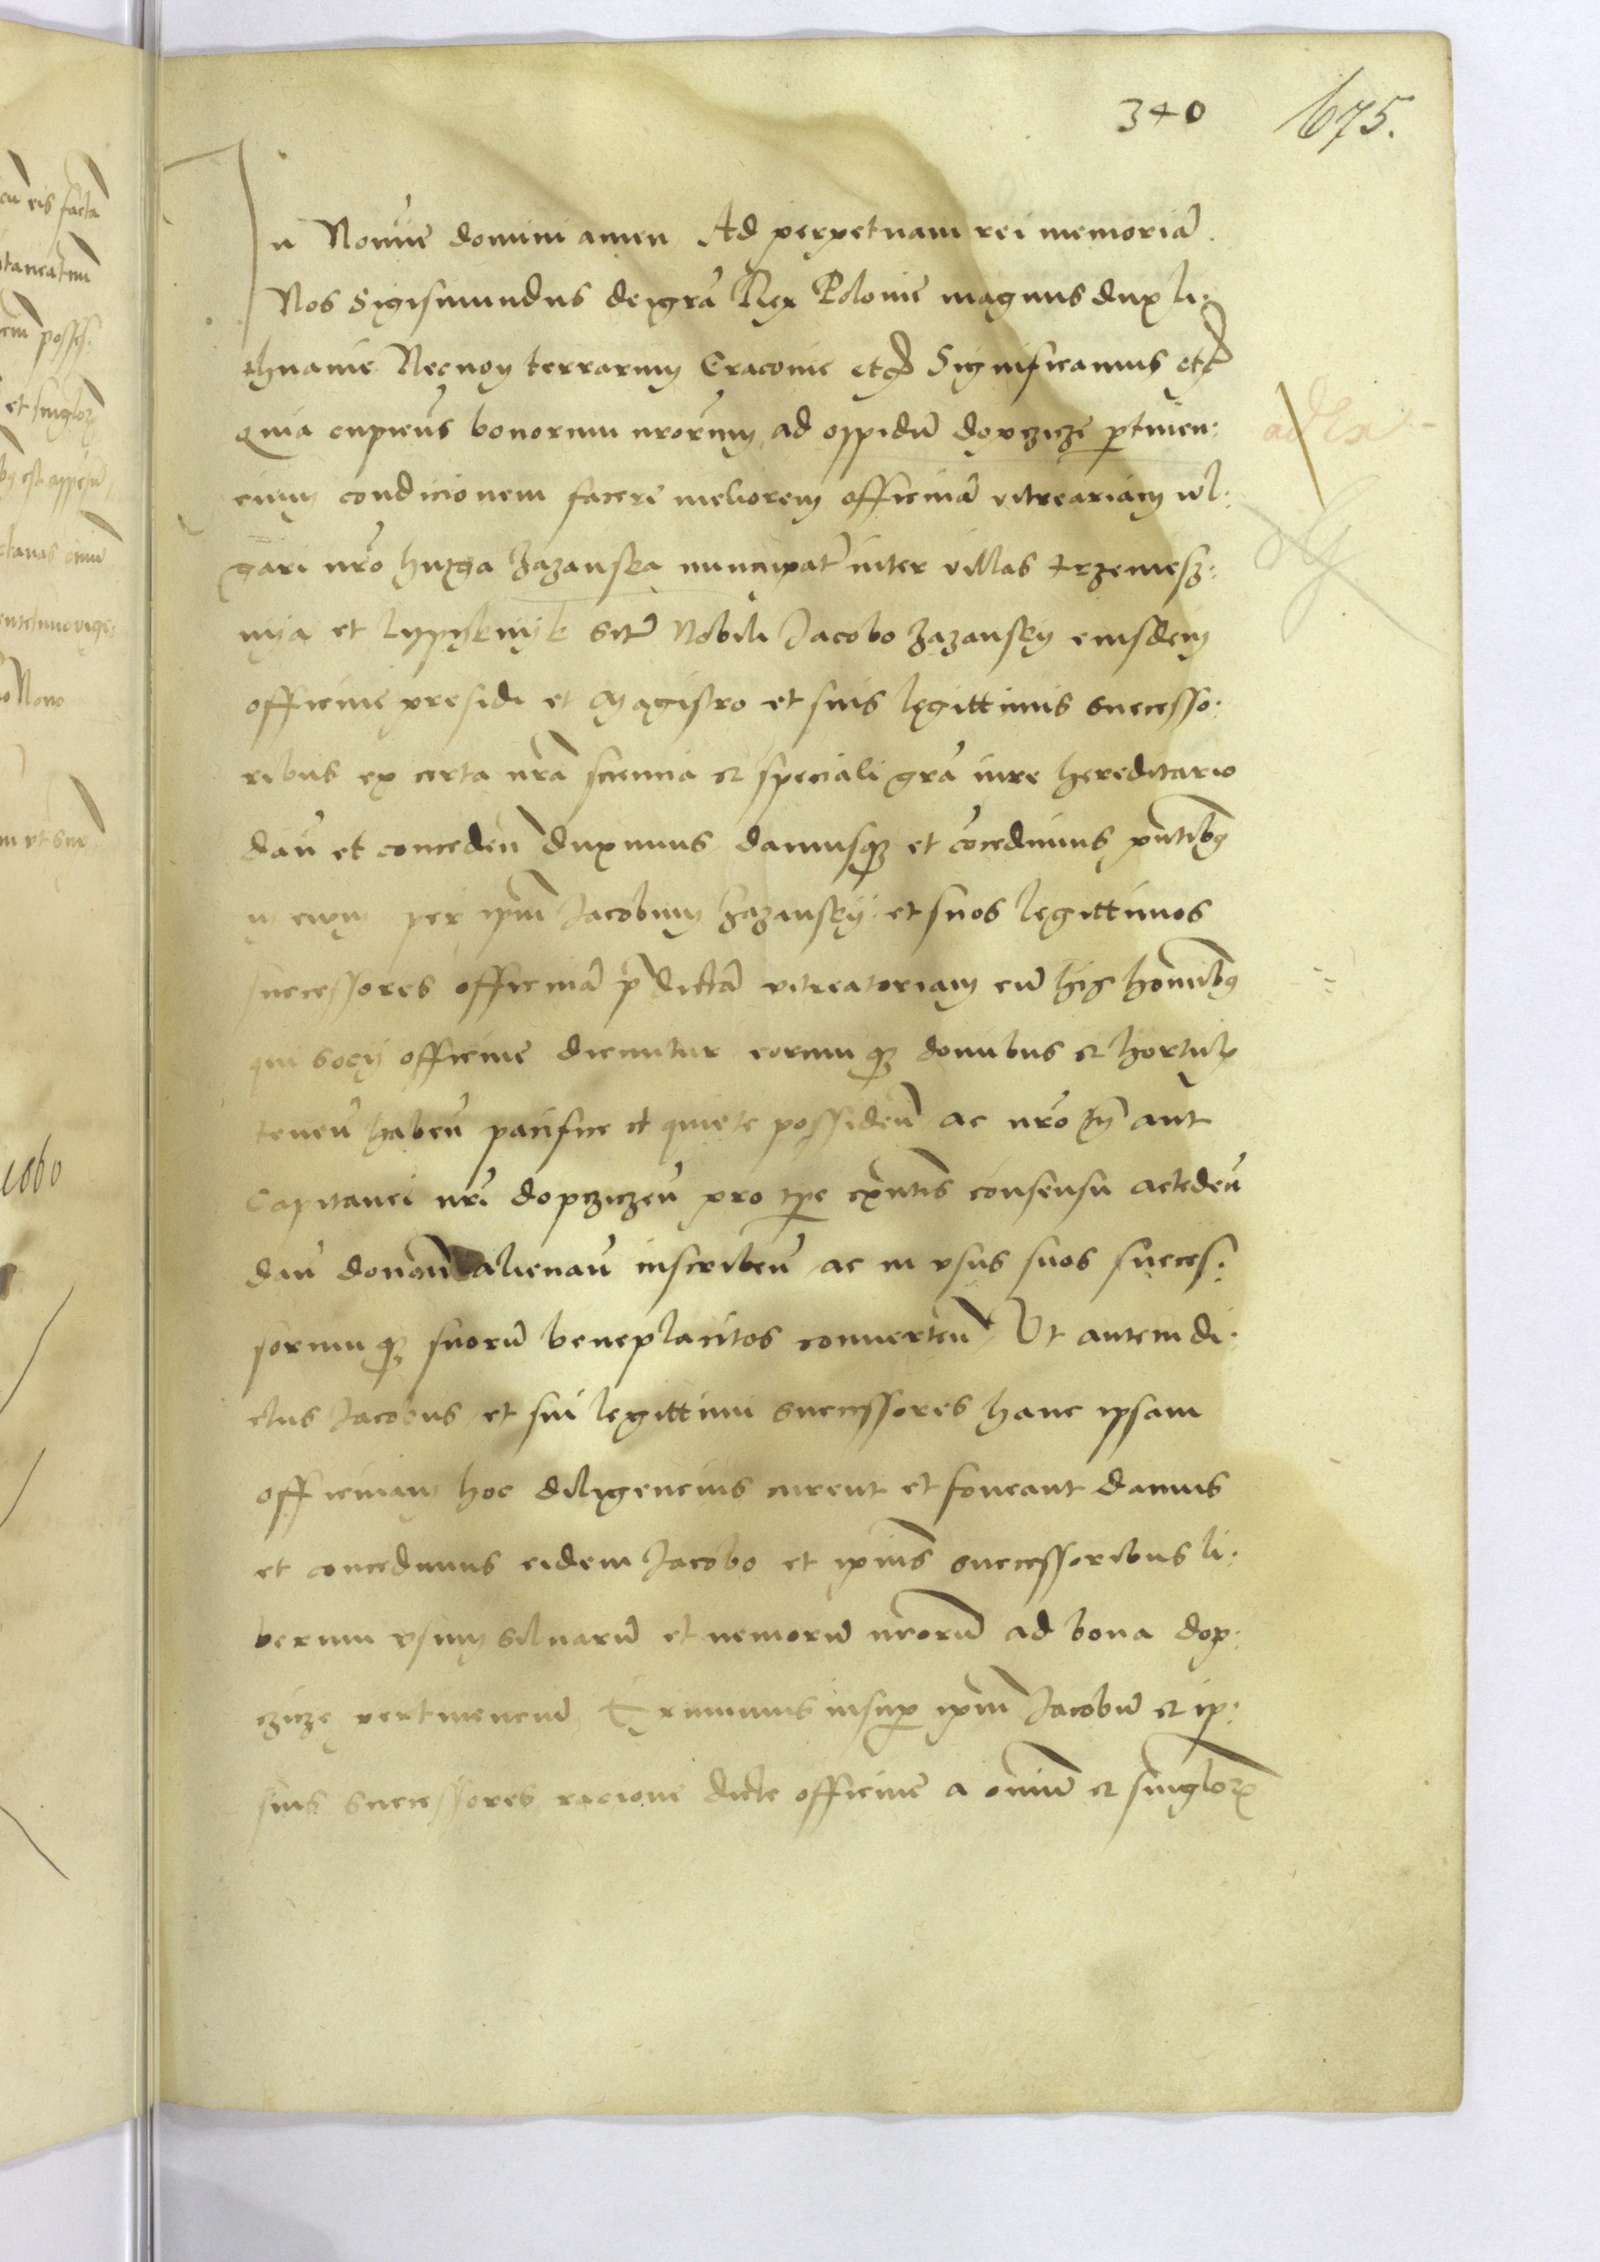 340 675.
In Nomine domini amen Ad perpetuam rei memoriā
Nos Sigismundus dei grā Rex Polonie magnus dux li:
thuanie Necnon terrarum Cracovie etc Significamus etc
Quia cupiens bonorum nrorum ad oppidū dopczicze ptinen:
cium condicionem facere meliorem officinā vitreariam vl:
gari nrō hutha Zazanska nuncupatā inter villas trzemesz:
nya et Lypnyk sitā Nobili Jacobo Zazansky eiusdem
officine presidi et Magistro et suis legittimis successo:
ribus ex certa nrā sciencia et speciali grā iure hereditario
dan̄ et conceden̄ duximus damusq et cōcedimus pn̄tibus
per ipm̄ Jacobum Zazansky et suos legittimos
successores officinā pdictā vitreatoriam cū his hominibus
qui socy officine dicuntur eorumq domibus et hortulis
tenen̄ haben̄ pacifice et quiete possiden̄ ac nrō tn̄ aut
Capitanei nrī dopcziczen̄ pro tpe exn̄tis consensu acceden̄
dan̄ donan̄ alienan̄ inscriben̄ ac in vsus suos succes:
sorumq suorū beneplacitos conuerten̄ Vt autem di:
ctus Jacobus et sui legittimi successores hanc ipsam
officinam hoc diligencius curent et foueant damus
et concedimus eidem Jacobo et ipius successoribus li:
berum vsum siluarū et nemorū nrorū ad bona dop:
czicze pertinenciū Eximimus insup ipm̄ Jacobū et ip:
sius successores racione dicte officine a oniū et singlorz